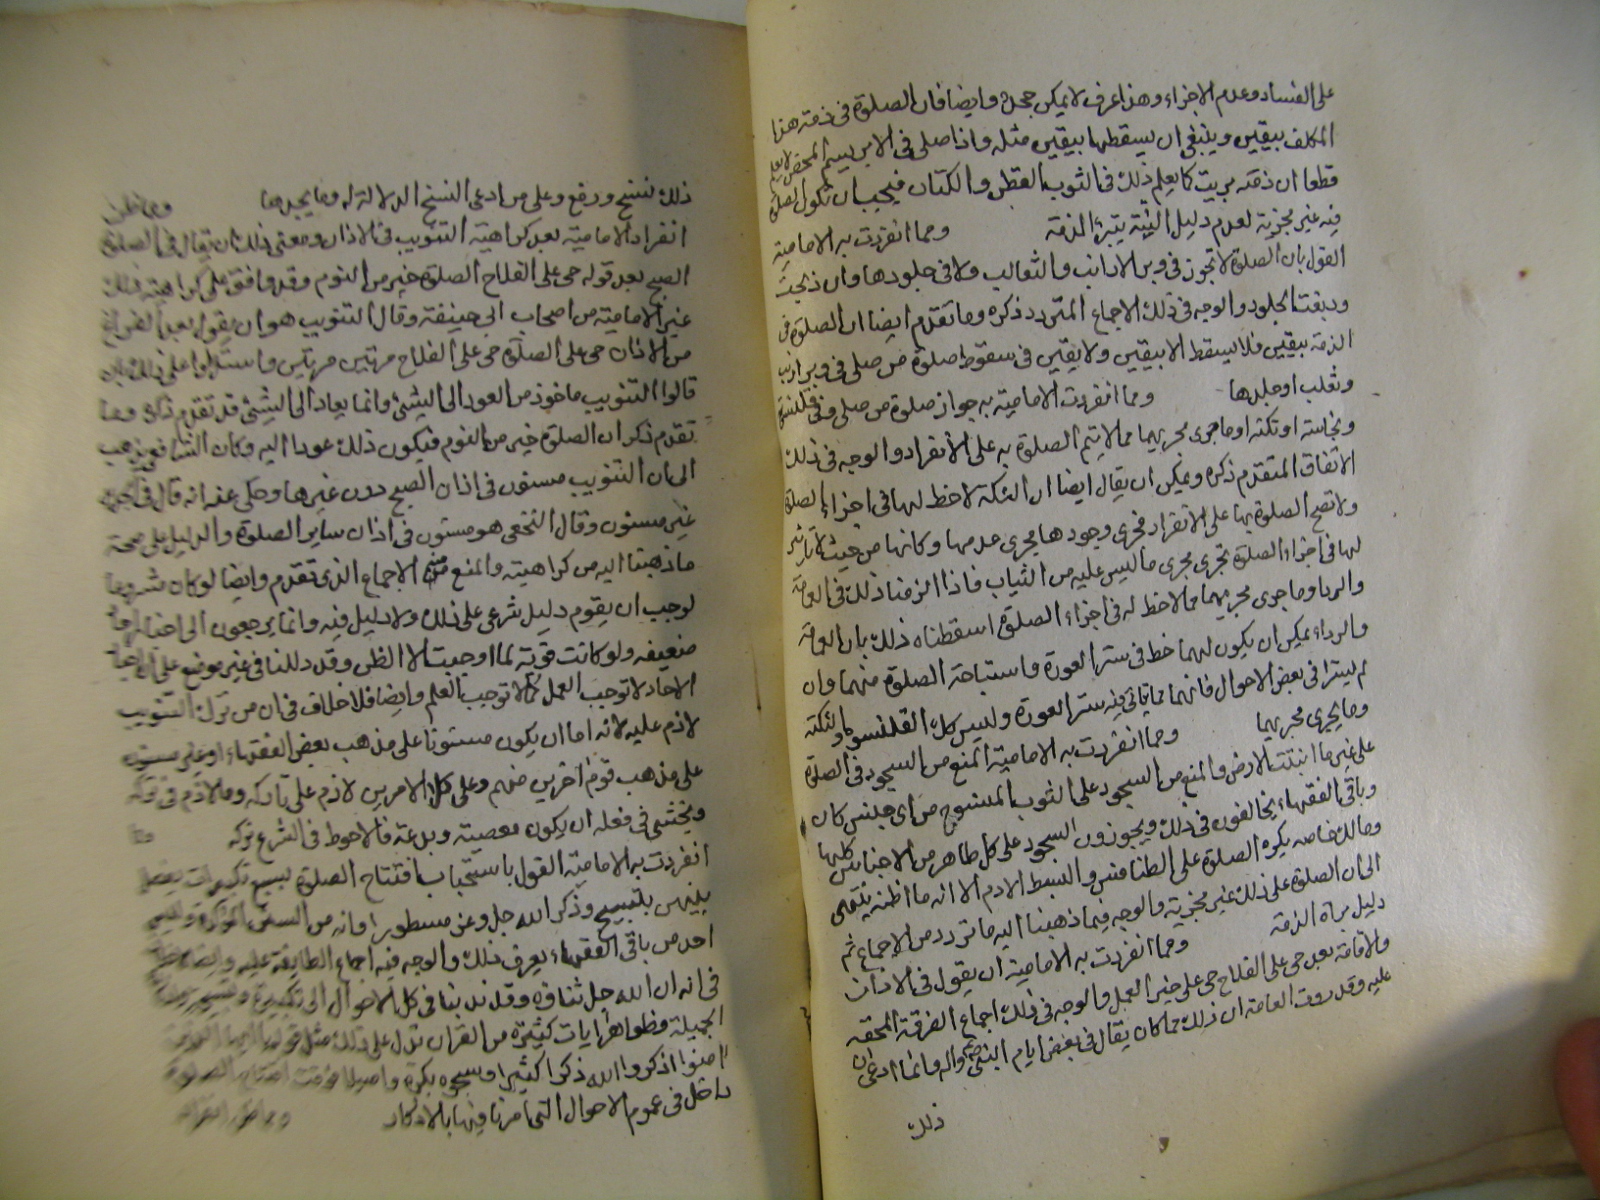 على الفساد وعدم الاجزاء وهذا عرف لا يمكن جحده وايضا فان الصلوة فى ذمة هذا
المكلف بيقين وينبغى ان يسقطها بيقين مثله واذا صلى فى الابريسم المحض لا يعلم
قطعا ان ذمته بريت كما يعلم ذلك فى الثوب القطن والكتان فيجب ان تكون الصلوة
فيه غير مجزية لعدم دليل تبرئ الذمة ومما انفردت به الامامية
القول بان الصلوة لا تجوز فى وبر الارانب والثعالب ولا فى جلودها وان ذبحت
ودبغت الجلود والوجه فى ذلك الاجماع المتردد ذكره وما تقدم ايضا ان الصلوة فى
الذمة بيقين فلا يسقط الا بيقين ولا يقين فى سقوط صلوة من صلى فى وبر ارنب
وثعلب او جلدها ومما انفردت الامامية به جواز صلوة من صلى وفى قلنسوته
ونجاسته او تكته او ما جرى مجريهما مما لا يتم الصلوة به على الانفراد والوجه فى ذلك
الاتفاق المتقدم ذكره ويمكن ان يقال ايضا ان التكة لا حظ لها فى اجزاء الصلوة
ولا تصح الصلوة بها على الانفراد فجرى وجودها مجرى عدمها وكانها من حيث لا تاثير
لها فى اجزاء الصلوة تجرى مجرى ما ليس عليه من الثياب فاذا الزمنا ذلك فى العمامة
والردا وما جرى مجريهما مما لا حظ له فى اجزاء الصلوة اسقطناه ذلك بان العمامة
والرداء يمكن ان يكون لهما حظ فى ستر العورة واستباحة الصلوة منهما وان
لم ليترا فى بعض الاحوال فانهما مما يتاتى فيه ستر العورة وليس كذلك القلنسوة والتكة
وما يجرى مجريهما ومما انفردت به الامامية المنع من السجود فى الصلوة
على غير ما انبتت الارض والمنع من السجود على الثوب المنسوج من اى جنس كان
وباقى الفقهاء يخالفون فى ذلك ويجوزون السجود على كل طاهر من الاجناس كلها
ومالك خاصه يكره الصلوة على الطنافس والبسط الادم الا انه ما اظنه ينتهى
الى ان الصلوة على ذلك غير مجزية والوجه فيما ذهبنا اليه ما تردد من الاجماع ثم
دليل براة الذمة ومما انفردت به الامامية ان يقول فى الاذان
والاقامة بعد حى على الفلاح حى على خير العمل والوجه فى ذلك اجماع الفرقة المحقه
عليه وقد روت العامة ان ذلك مما كان يقال فى بعض ايام النبى صلم واله وانما ادعى ان
ذلك
ذلك نسخ ورفع وعلى من ادعى النسخ الدلالة له وما يجدها ومما ظن
انفراد الامامية بعد كراهية التثويب فى الاذان ومعنى ذلك ان يقال فى الصلوة
الصبح بعد قوله حى على الفلاح الصلوة خير من النوم وقد وافق على كراهية ذلك
غير الامامية من اصحاب ابى حنيفة وقال التثويب هو ان يقول بعد الفراغ
من الاذان حى على الصلوة حى على الفلاح مرتين مرتين واستدلوا على ذلك بان
قالوا التثويب ماخوذ من العود الى الشئ وانما يعاد الى الشئ قد تقدم ذكره وما
تقدم ذكر ان الصلوة خير من النوم فيكون ذلك عودا اليه وكان الشافعى يذهب
الى ان التثويب مسنون فى اذان الصبح دون غيرها وحكى عنه انه قال فى الجديد
غير مسنون وقال النخعى هو مسنون فى اذان ساير الصلوة والدليل على صحة
ما ذهبنا اليه من كراهيته والمنع منه الاجماع الذى تقدم وايضا لو كان مشروعا
لوجب ان يقوم دليل شرعى على ذلك ولا دليل فيه وانما يرجعون الى اخبار احاد
ضعيفه ولو كانت قوية لما اوجبت الا الظن وقد دللنا فى غير موضع على ان اخبار
الاحاد لا توجب العمل كما لا توجب العلم وايضا فلا خلاف فى ان من ترك التثويب
لا ذم عليه لانه اما ان يكون مسنونا على مذهب بعض الفقهاء او غير مسنون
على مذهب قوم اخرين منهم وعلى كلا الامرين لا ذم على تاركه وما لا ذم فى تركه
ويخشى فى فعله ان يكون معصية وبدعة فالاحوط فى الشرع تركه ومما
انفردت به الامامية القول باستحباب افتتاح الصلوة بسبع تكبيرات يفصل
بينهن بتسبيح وذكر الله جل وعز مسطور وانه من السنن المؤكدة وليس
احد من باقى الفقهاء يعرف ذلك والوجه فيه اجماع الطايفة عليه وايضا فلا خلاف
فى انه ان الله جل ثناؤه وقد ندبنا فى كل الاحوال الى تكبيره وتسبيحه
الجميلة وظواهر ايات كثيرة من القران تدل على ذلك مثل قوله يا ايها الذين
امنوا اذكروا الله ذكرا كثيرا وسبحوه بكرة واصيلا فوقت افتتاح الصلوة
داخل فى عموم الاحوال التى امرنا فيها بالاذكار ومما ظن انفراد